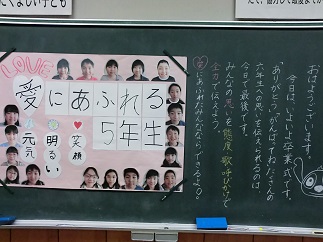 LOVE
愛にあふれる
5年生
元気
明るい
笑顔
おはようございます。
今日は、いよいよ卒業式です。
"ありがとう、がんばってね"と
六年生への思いを伝えられるのは、
今日で最後です。
みんなの思いを態度、歌、呼びかけで
全力で伝えよう。
愛にあふれたみんなならできるよ。